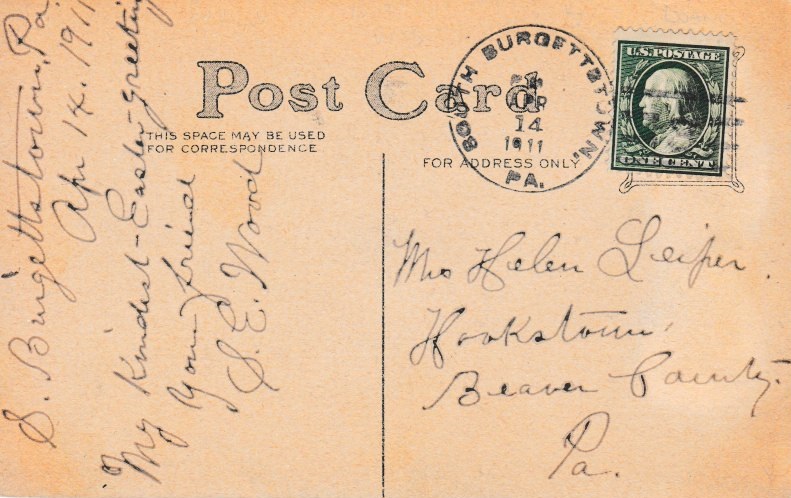 Post Card
THIS SPACE MAY BE USED
FOR CORRESPONDENCE
FOR ADDRESS ONLY
SOUTH BURGETTSTOWN,
APR
14
1911
PA.
U.S. POSTAGE
ONE CENT
S. Burgettstown, Pa
Apr 14, 1911
My Kindest Easter greeting
Your friend
S. E. Wood
Helen Leiper.
Hookstown,
Beaver County.
Pa.